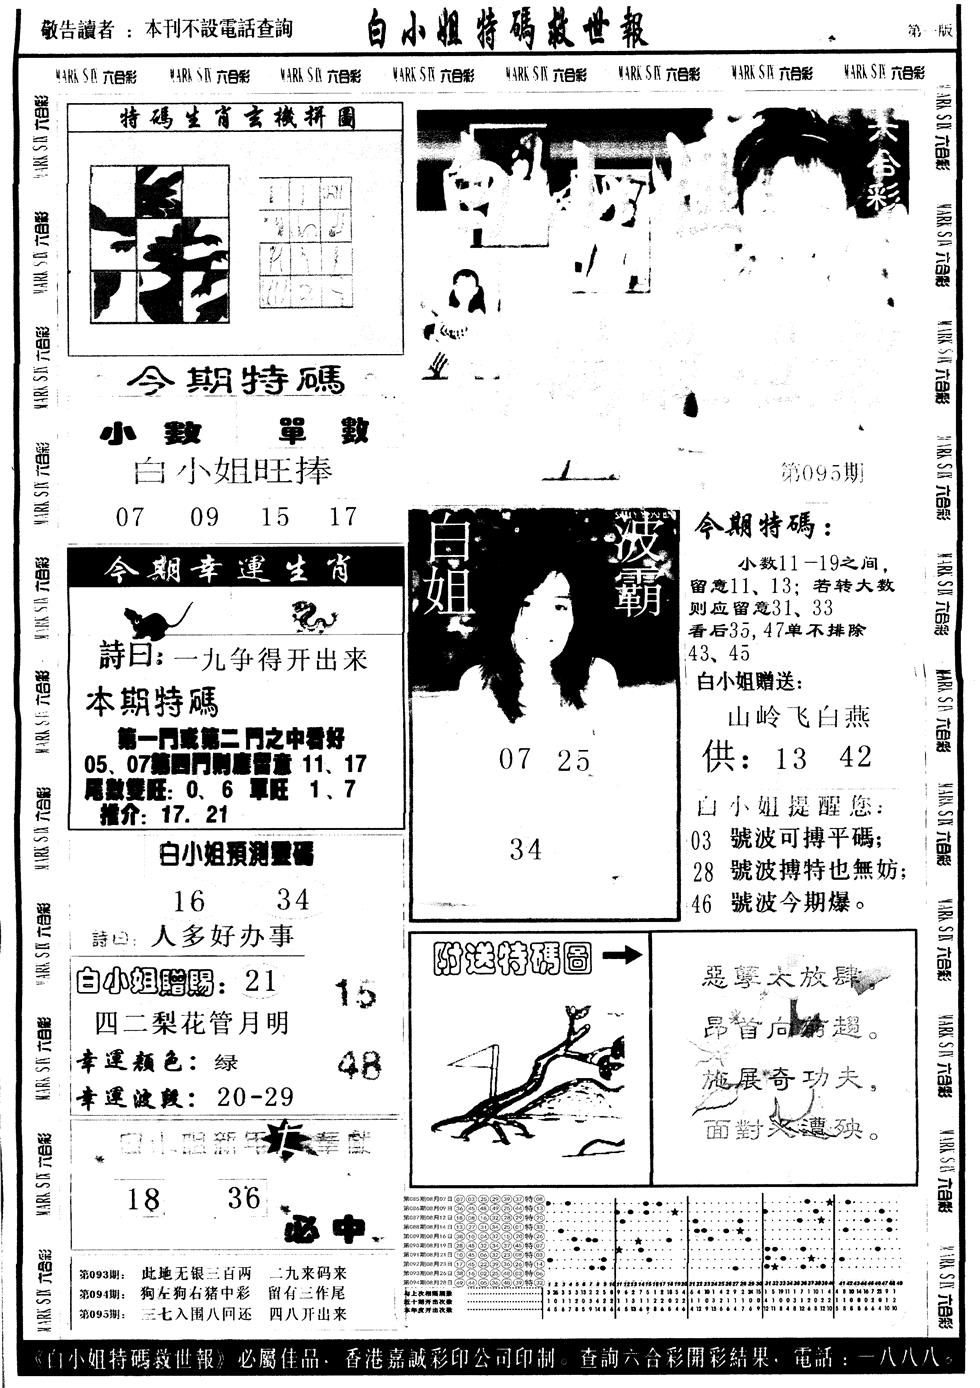 敬告讀者：本刊不設電話查詢
白小姐特碼救世報
第一版
MARK SIX 六合彩 MARK SIX 六合彩 MARK SIX 六合彩 MARK SIX 六合彩 MARK SIX 六合彩 MARK SIX 六合彩 MARK SIX 六合彩 MARK SIX 六合彩
特碼生肖玄機拼圖
六合彩
第095期
今期特碼
小數 單數
白小姐旺捧
07 09 15 17
今期幸運生肖
詩曰：一九争得开出来
本期特碼
第一門或第二門之中看好
05、07第四門則應留意 11、17
尾數雙旺：0、6 單旺 1、7
推介：17. 21
白小姐預測靈碼
16 34
詩曰：人多好办事
白小姐贈賜：21
15
四二梨花管月明
幸運顏色：绿
48
幸運波段：20-29
18 36
必中
第093期： 此地无银三百两 二九来码来
第094期： 狗左狗右猪中彩 留有三作尾
第095期： 三七入围八回还 四八开出来
白姐
波霸
07 25
34
今期特碼：
小数11-19之间，
留意11、13；若转大数
则应留意31、33
看后35,47单不排除
43、45
白小姐贈送：
山岭飞白燕
供：13 42
白小姐提醒您：
03 號波可搏平碼；
28 號波搏特也無妨；
46 號波今期爆。
附送特碼圖
惡孽太放肆，
昂首向前趨。
施展奇功夫，
面對又遭殃。
《白小姐特碼救世報》必屬佳品，香港嘉誠彩印公司印制。查詢六合彩開彩結果，電話：一八八八。